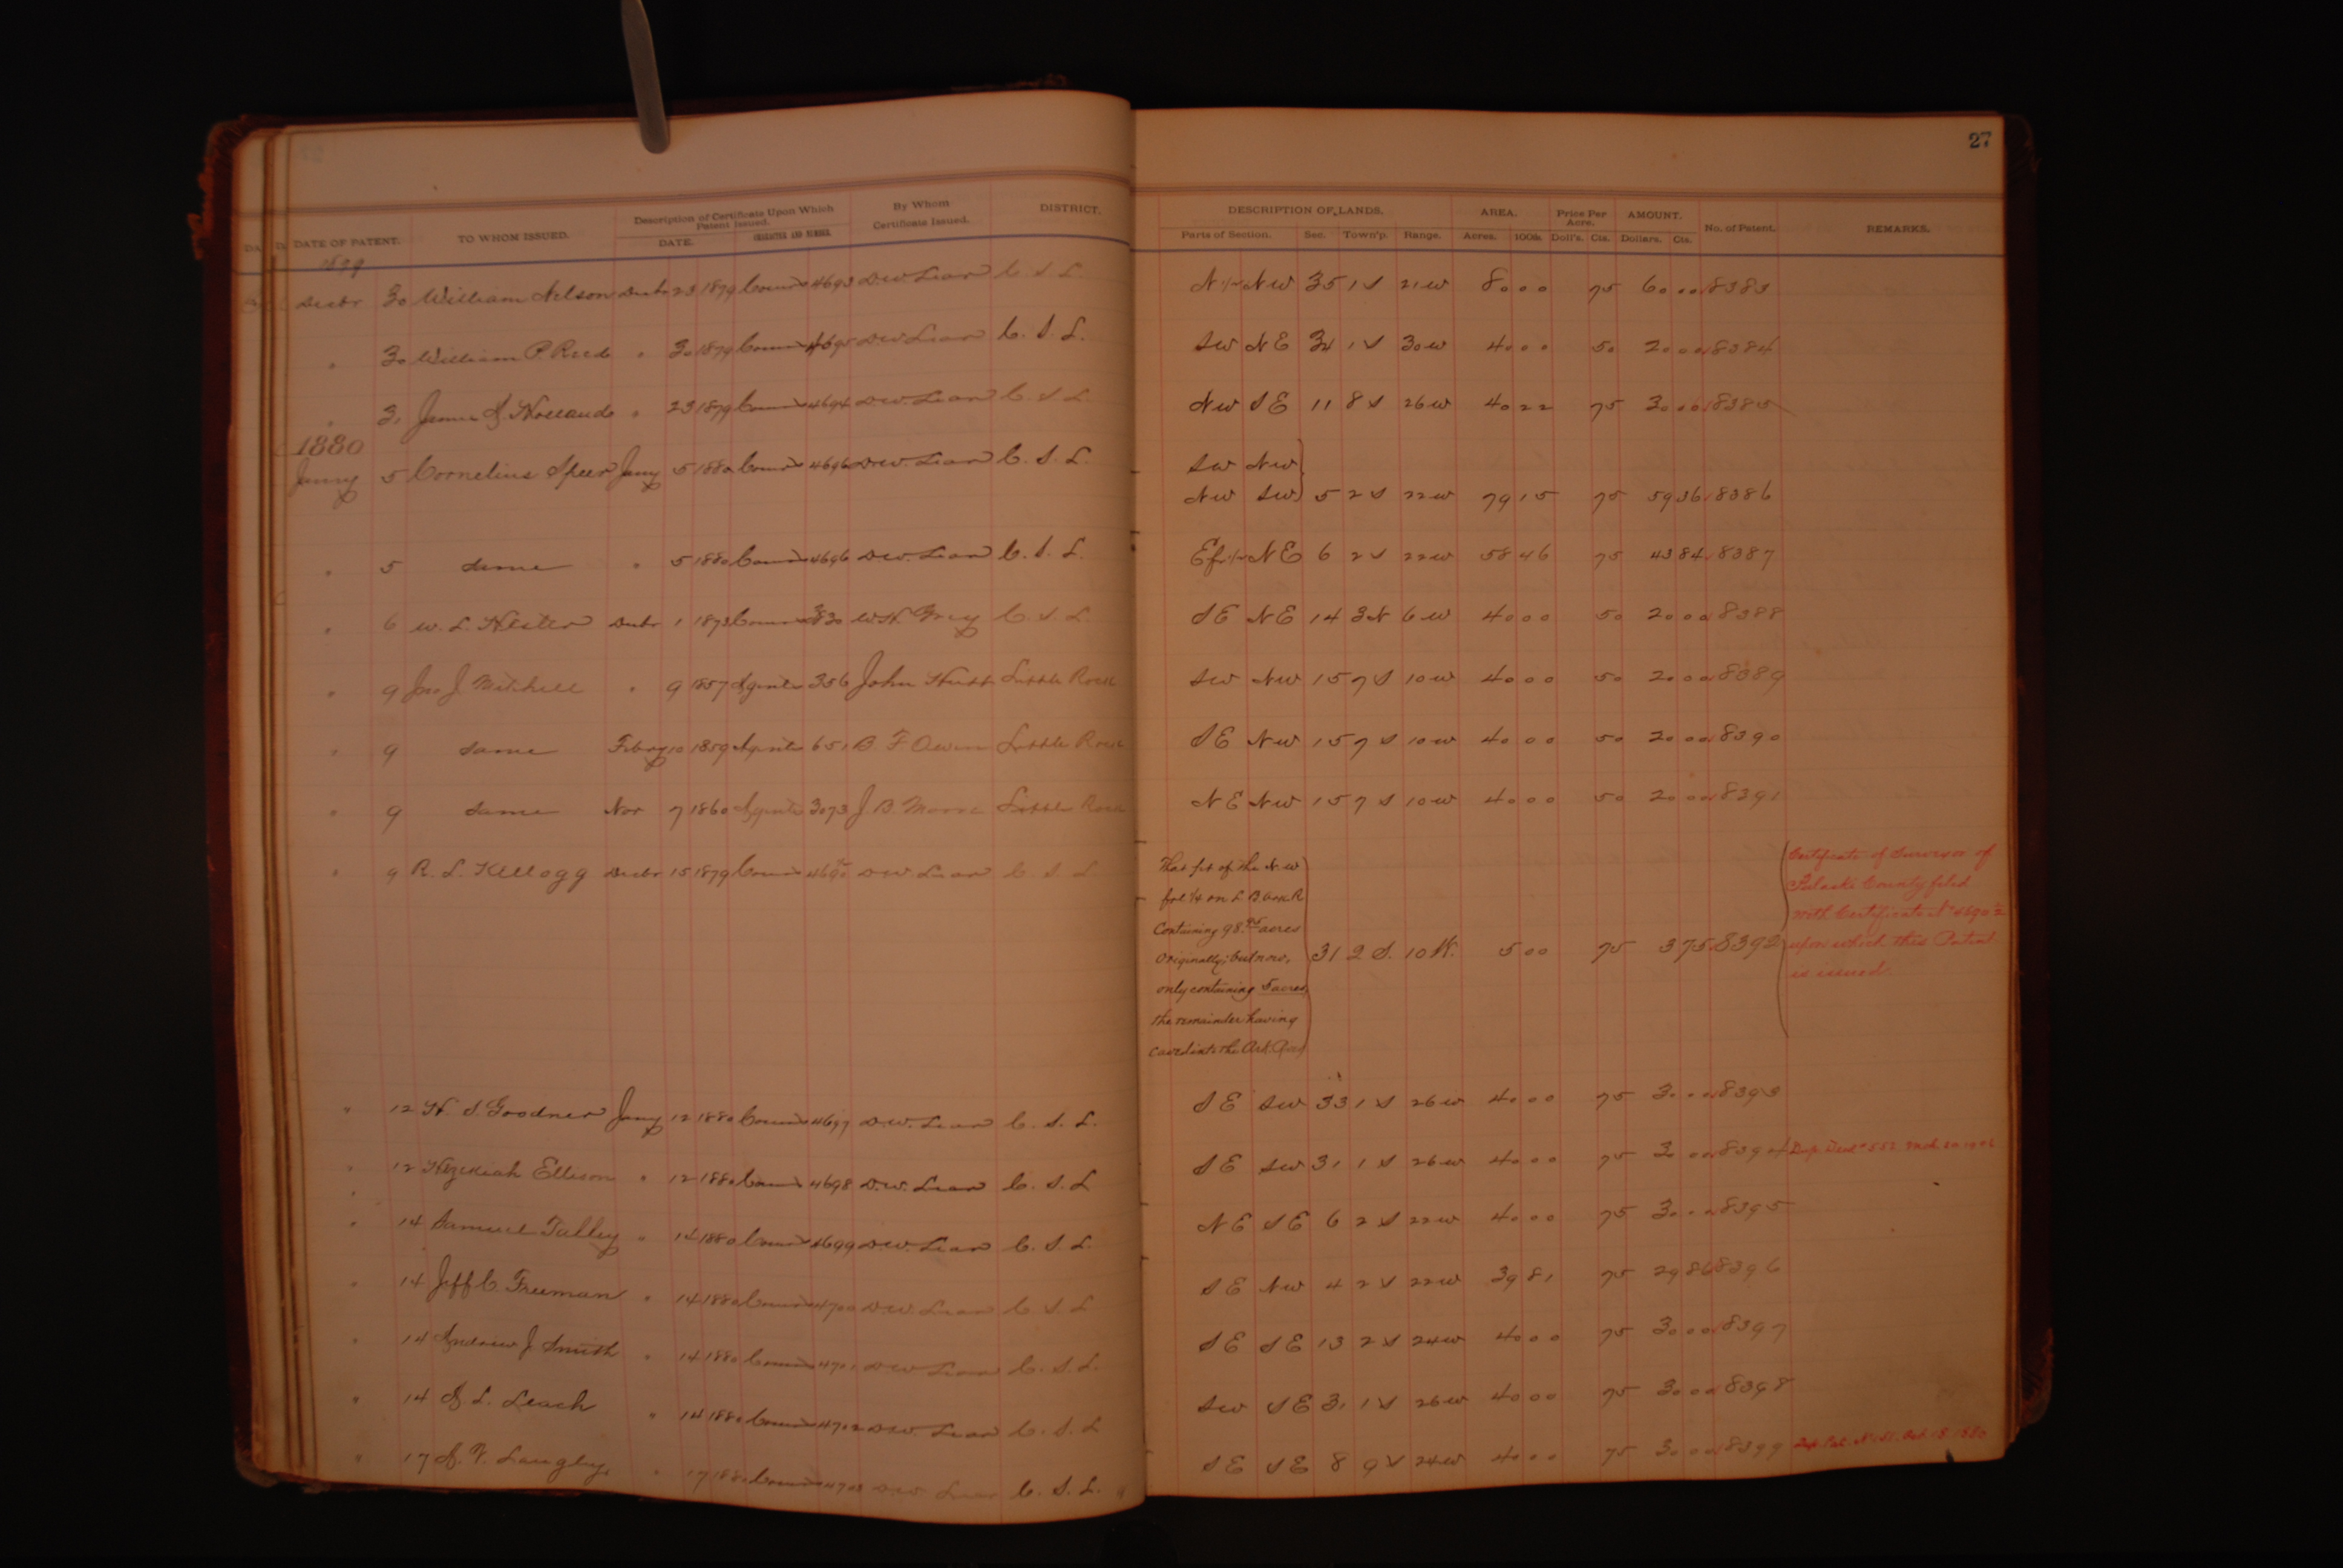 27
DATE OF PATENT. TO WHOM ISSUED. Description of Certificate Upon Which Patent Issued. By Whom Certificate Issued. DISTRICT. DESCRIPTION OF LANDS. AREA. Price Per Acre. AMOUNT. No. of Patent. REMARKS.
DATE. CHARACTER AND NUMBER. Parts of Section. Sec. Town'p. Range. Acres. 100ths Doll's. Cts. Dollars. Cts.
1879
Decbr 30 William Nelson Decbr 23 1879 4693 D.W. Lear C S L N ½ NW 35 1 S 21 W 80 00 75 60 00 8383
" 30 William P. Reed " 30 1879 4695 D.W. Lear C. S. L. SW NE 1 S 30 W 40 00 50 20 00 8384
" 31 James Holland " 23 1879 4694 D.W. Lear C S L NW SE 11 8 S 26 W 40 22 75 30 8385
1880
Jany 5 Cornelius Speer Jany 5 1880 4696 D.W. Lear C. S. L. SW NW
NW SW 5 2 S 22 W 79 15 75 59 36 8386
" 5 Same " 5 1880 4696 D.W. Lear C. S. L. E fr ½ NE 6 2 S 22 W 58 46 75 43 84 8387
" 6 W. L. Hester Decbr 1 1873 W.H. Grey C. S. L. SE NE 14 3 N 6 W 40 00 50 20 00 8388
" 9 Jno J Mitchell " 9 1857 Agents 356 John Hutt Little Rock SW NW 15 7 S 10 W 40 00 50 20 00 8389
" 9 Same Febry 10 1859 Agents 651 B. F Owen Little Rock SE NW 15 7 S 10 W 40 00 50 20 00 8390
" 9 Same Nov 7 1860 Agents 3073 J. B. Moore Little Rock NE NW 15 7 S 10 W 40 00 50 20 00 8391
" 9 R. L. Kellogg Decbr 15 1879 D.W. Lear C. S. L That pt of the N.W
frl ¼ on L B Ark R
Containing 98.45 acres
Originally; but now,
only containing 5 acres,
the remainder having
caved into the Ark. River
31 2 S. 10 W. 5 00 75 3 75 8392
Certificate of Surveyor of
Pulaski County filed
with Certificate No 4690 ½
upon which this Patent
is issued
" 12 H. S. Goodner Jany 12 1880 4697 D.W. Lear C. S. L. SE SW 33 1 S 26 W 40 00 75 30 00 8393
" 12 Hezekiah Ellison " 12 1880 4698 D.W. Lear C. S. L SE SW 31 1 S 26 W 40 00 75 30 00 8394
" 14 Samuel Talley " 14 1880 4699 D.W. Lear C. S. L. NE SE 6 2 S 22 W 40 00 75 30 00 8395
" 14 Jeff C. Freeman " 14 1880 4700 D.W. Lear C. S. L SE NW 4 2 S 22 W 39 81 75 29 86 8396
" 14 Andrew J Smith " 14 1880 4701 D.W. Lear C. S. L. SE SE 13 2 S 24 W 40 00 75 30 00 8397
" 14 L. Leach " 14 1880 4702 D.W. Lear C. S. L SW SE 31 1 S 26 W 40 00 75 30 00 8398
" 17 Langley " 17 1880 4703 D.W. Lear C. S. L. SE SE 8 9 S 24 W 40 00 75 30 00 8399